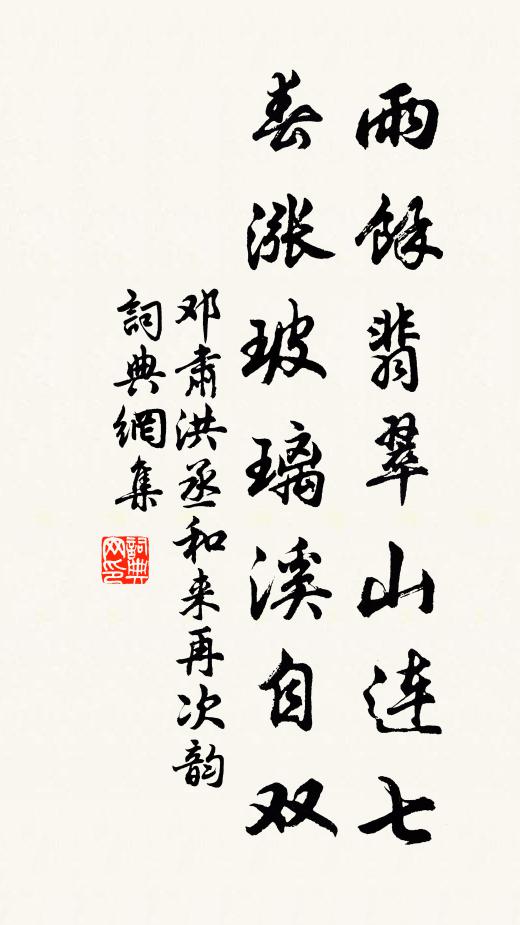 雨餘翡翠山連七
春漲玻璃溪自双
邓肅洪丞和来再次韵
詞典網集
詞典网印